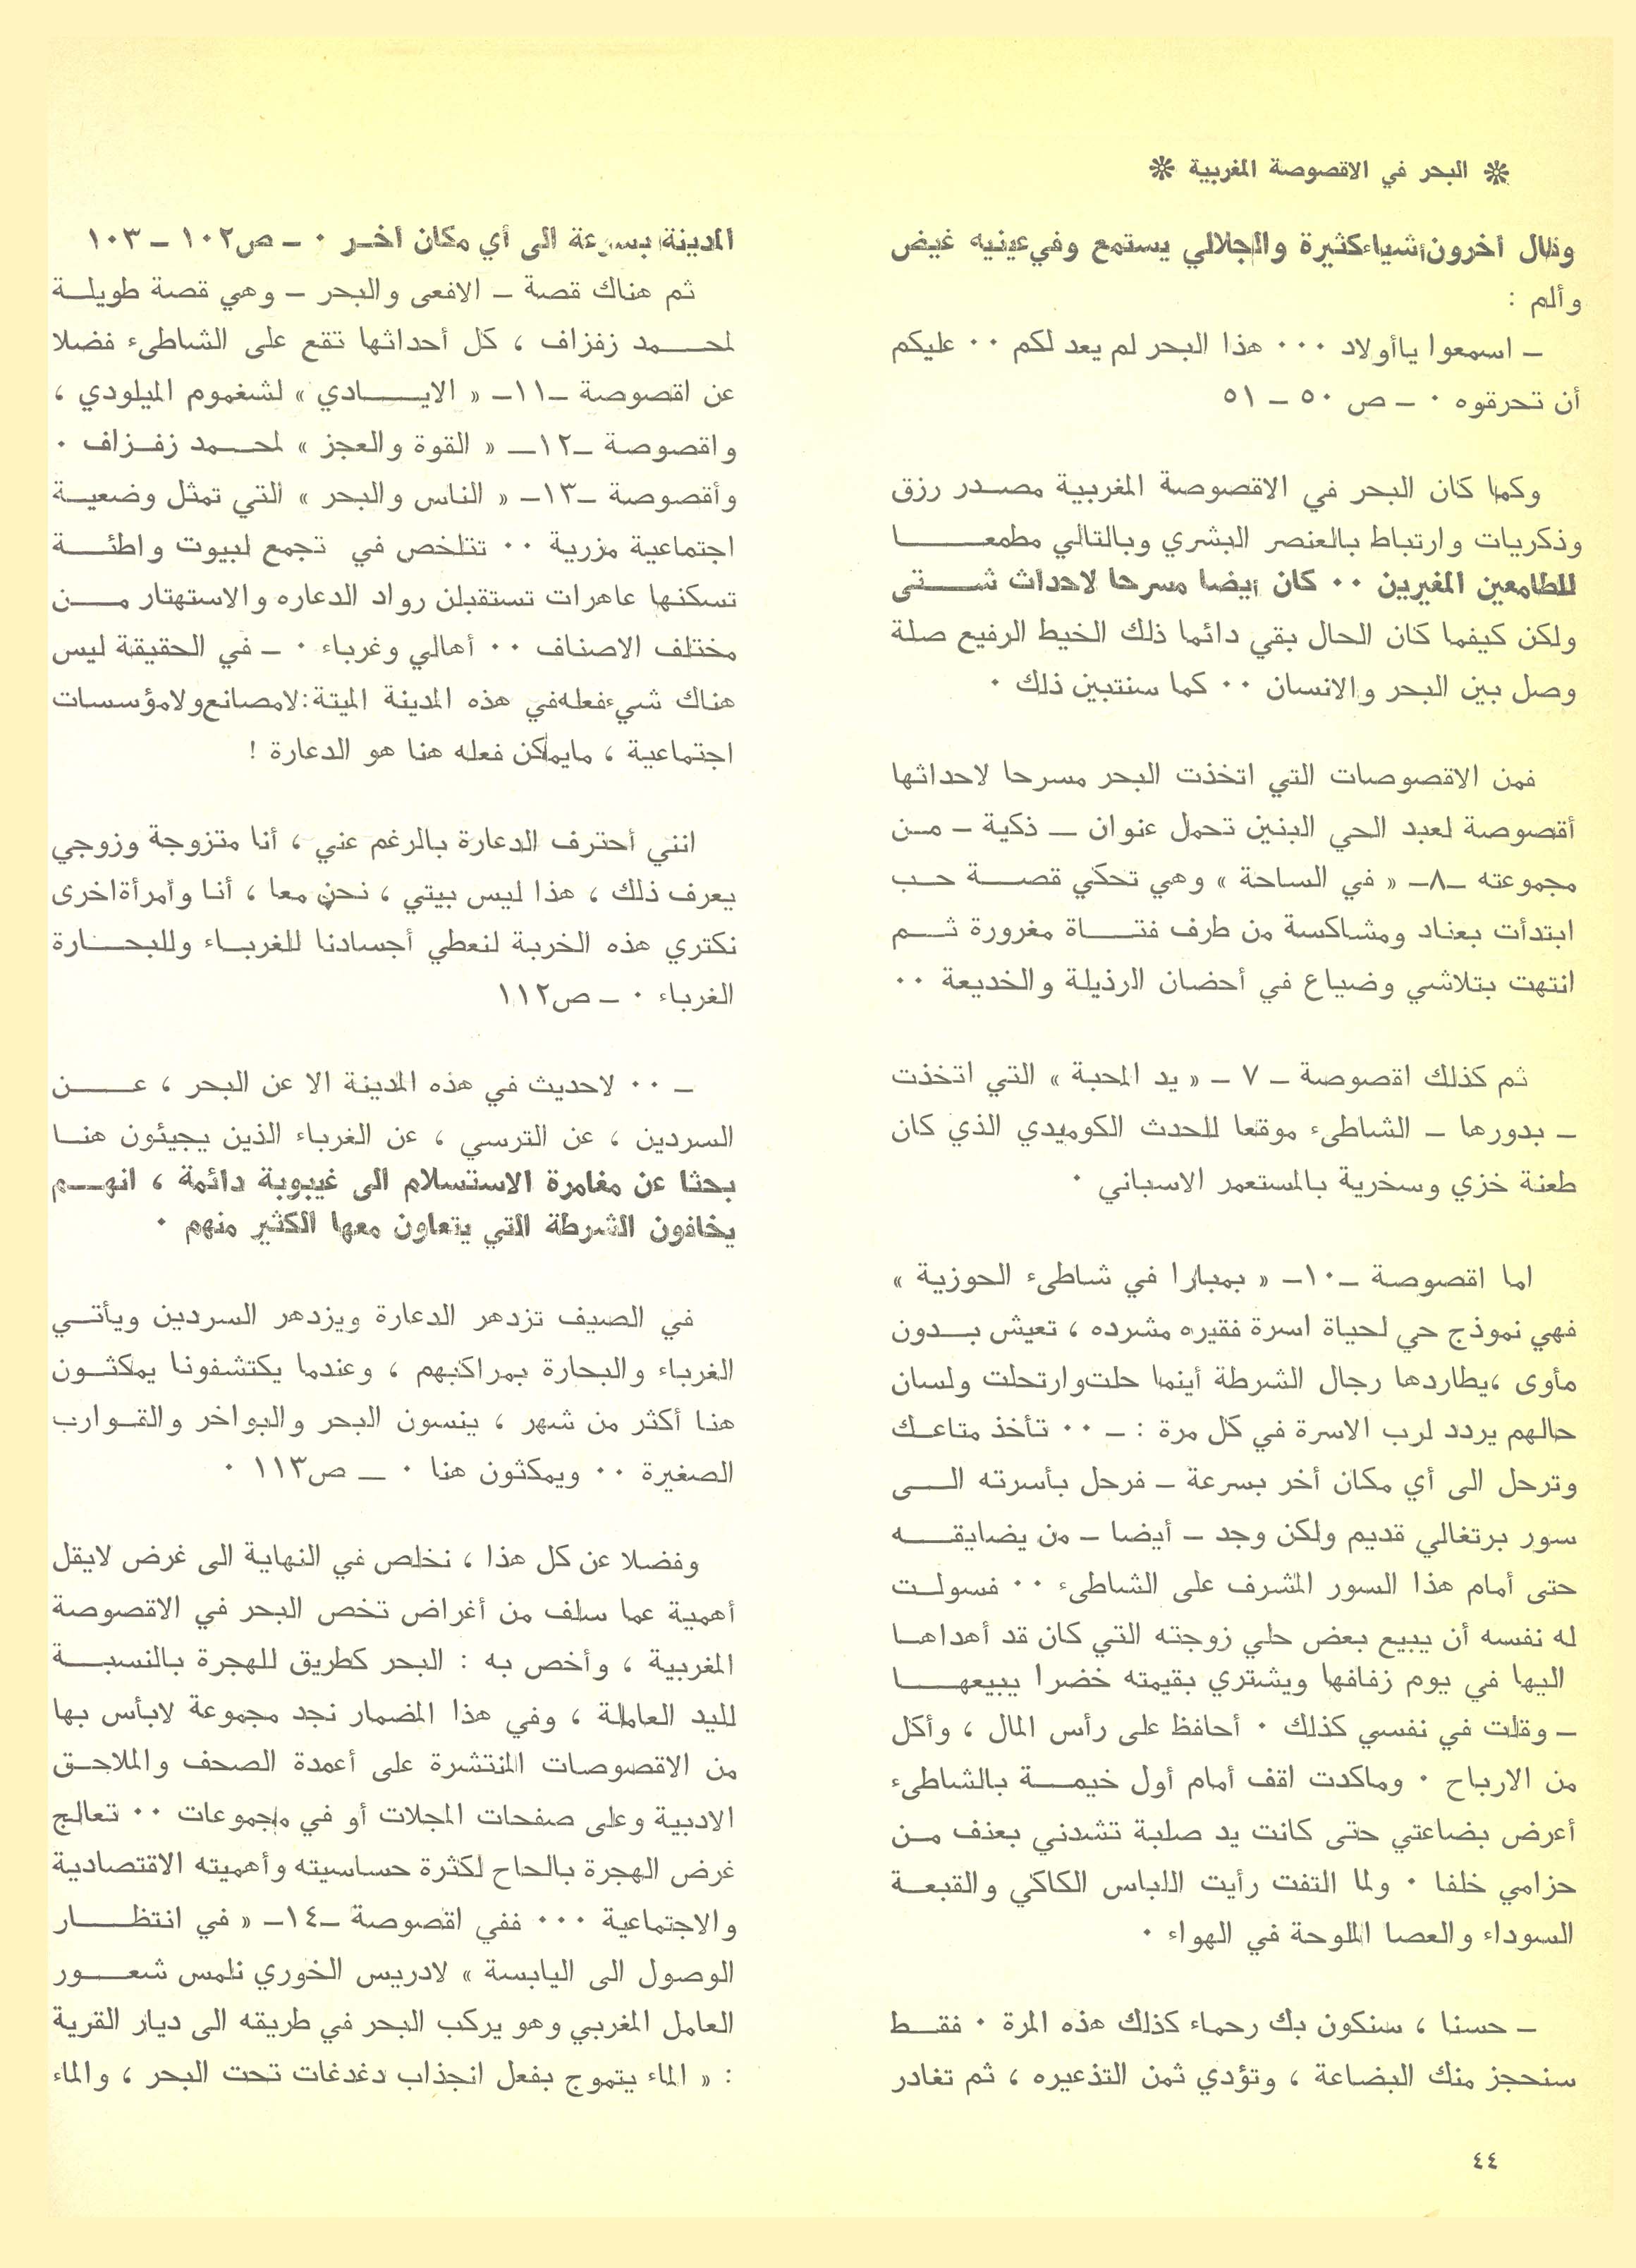 ❊ البحر في الاقصوصة المغربية ❊
وقال أخرون أشياء كثيرة والجلالي يستمع وفي عينيه غيض
وألم :
ـ اسمعوا ياأولاد ٠٠٠ هذا البحر لم يعد لكم ٠٠ عليكم
أن تحرقوه ٠ ـ ص ٥٠ ـ ٥١
وكما كان البحر في الاقصوصة المغربية مصدر رزق
وذكريات وارتباط بالعنصر البشري وبالتالي مطمعا
للطامعين المغيرين ٠٠ كان أيضا مسرحا لاحداث شتى
ولكن كيفما كان الحال بقي دائما ذلك الخيط الرفيع صلة
وصل بين البحر والانسان ٠٠ كما سنتبين ذلك ٠
فمن الاقصوصات التي اتخذت البحر مسرحا لاحداثها
أقصوصة لعبد الحي البنين تحمل عنوان ـ ذكية ـ من
مجموعته ـ٨ـ « في الساحة » وهي تحكي قصة حب
ابتدأت بعناد ومشاكسة من طرف فتاة مغرورة ثم
انتهت بتلاشي وضياع في أحضان الرذيلة والخديعة ٠٠
ثم كذلك اقصوصة ـ ٧ ـ « يد المحبة » التي اتخذت
ـ بدورها ـ الشاطىء موقعا للحدث الكوميدي الذي كان
طعنة خزي وسخرية بالمستعمر الاسباني ٠
اما اقصوصة ـ١٠ـ « بمبارا في شاطىء الحوزية »
فهي نموذج حي لحياة اسرة فقيره مشرده ، تعيش بدون
مأوى ،يطاردها رجال الشرطة أينما حلت وارتحلت ولسان
حالهم يردد لرب الاسرة في كل مرة : ـ ٠٠ تأخذ متاعك
وترحل الى أي مكان أخر بسرعة ـ فرحل بأسرته الى
سور برتغالي قديم ولكن وجد ـ أيضا ـ من يضايقه
حتى أمام هذا السور المشرف على الشاطىء ٠٠ فسولت
له نفسه أن يبيع بعض حلي زوجته التي كان قد أهداها
اليها في يوم زفافها ويشتري بقيمته خضرا يبيعها
ـ وقلت في نفسي كذلك ٠ أحافظ على رأس المال ، وأكل
من الارباح ٠ وماكدت اقف أمام أول خيمة بالشاطىء
أعرض بضاعتي حتى كانت يد صلبة تشدني بعنف من
حزامي خلفا ٠ ولما التفت رأيت اللباس الكاكي والقبعة
السوداء والعصا الملوحة في الهواء ٠
ـ حسنا ، سنكون بك رحماء كذلك هذه المرة ٠ فقط
سنحجز منك البضاعة ، وتؤدي ثمن التذعيره ، ثم تغادر
المدينة بسرعة الى أي مكان أخر ٠ ـ ص١٠٢ ـ ١٠٣
ثم هناك قصة ـ الافعى والبحر ـ وهي قصة طويلة
لمحمد زفزاف ، كل أحداثها تقع على الشاطىء فضلا
عن اقصوصة ـ١١ـ « الايادي » لشغموم الميلودي ،
واقصوصة ـ١٢ـ « القوة والعجز » لمحمد زفزاف ٠
وأقصوصة ـ١٣ـ « الناس والبحر » التي تمثل وضعية
اجتماعية مزرية ٠٠ تتلخص في تجمع لبيوت واطئة
تسكنها عاهرات تستقبلن رواد الدعاره والاستهتار من
مختلف الاصناف ٠٠ أهالي وغرباء ٠ ـ في الحقيقة ليس
هناك شيء فعله في هذه المدينة الميتة:لامصانع ولا مؤسسات
اجتماعية ، مايمكن فعله هنا هو الدعارة !
انني أحترف الدعارة بالرغم عني ، أنا متزوجة وزوجي
يعرف ذلك ، هذا ليس بيتي ، نحن معا ، أنا وأمرأة اخرى
نكتري هذه الخربة لنعطي أجسادنا للغرباء وللبحارة
الغرباء ٠ ـ ص١١٢
ـ ٠٠ لاحديث في هذه المدينة الا عن البحر ، عن
السردين ، عن الترسي ، عن الغرباء الذين يجيئون هنا
بحثا عن مغامرة الاستسلام الى غيبوبة دائمة ، انهم
يخافون الشرطة التي يتعاون معها الكثير منهم ٠
في الصيف تزدهر الدعارة ويزدهر السردين ويأتي
الغرباء والبحارة بمراكبهم ، وعندما يكتشفونا يمكثون
هنا أكثر من شهر ، ينسون البحر والبواخر والقوارب
الصغيرة ٠٠ ويمكثون هنا ٠ ـ ص١١٣ ٠
وفضلا عن كل هذا ، نخلص في النهاية الى غرض لايقل
أهمية عما سلف من أغراض تخص البحر في الاقصوصة
المغربية ، وأخص به : البحر كطريق للهجرة بالنسبة
لليد العاملة ، وفي هذا المضمار نجد مجموعة لابأس بها
من الاقصوصات المنتشرة على أعمدة الصحف والملاحق
الادبية وعلى صفحات المجلات أو في مجموعات ٠٠ تعالج
غرض الهجرة بالحاح لكثرة حساسيته وأهميته الاقتصادية
والاجتماعية ٠٠٠ ففي اقصوصة ـ١٤ـ « في انتظار
الوصول الى اليابسة » لادريس الخوري نلمس شعور
العامل المغربي وهو يركب البحر في طريقه الى ديار القرية
: « الماء يتموج بفعل انجذاب دغدغات تحت البحر ، والماء
٤٤